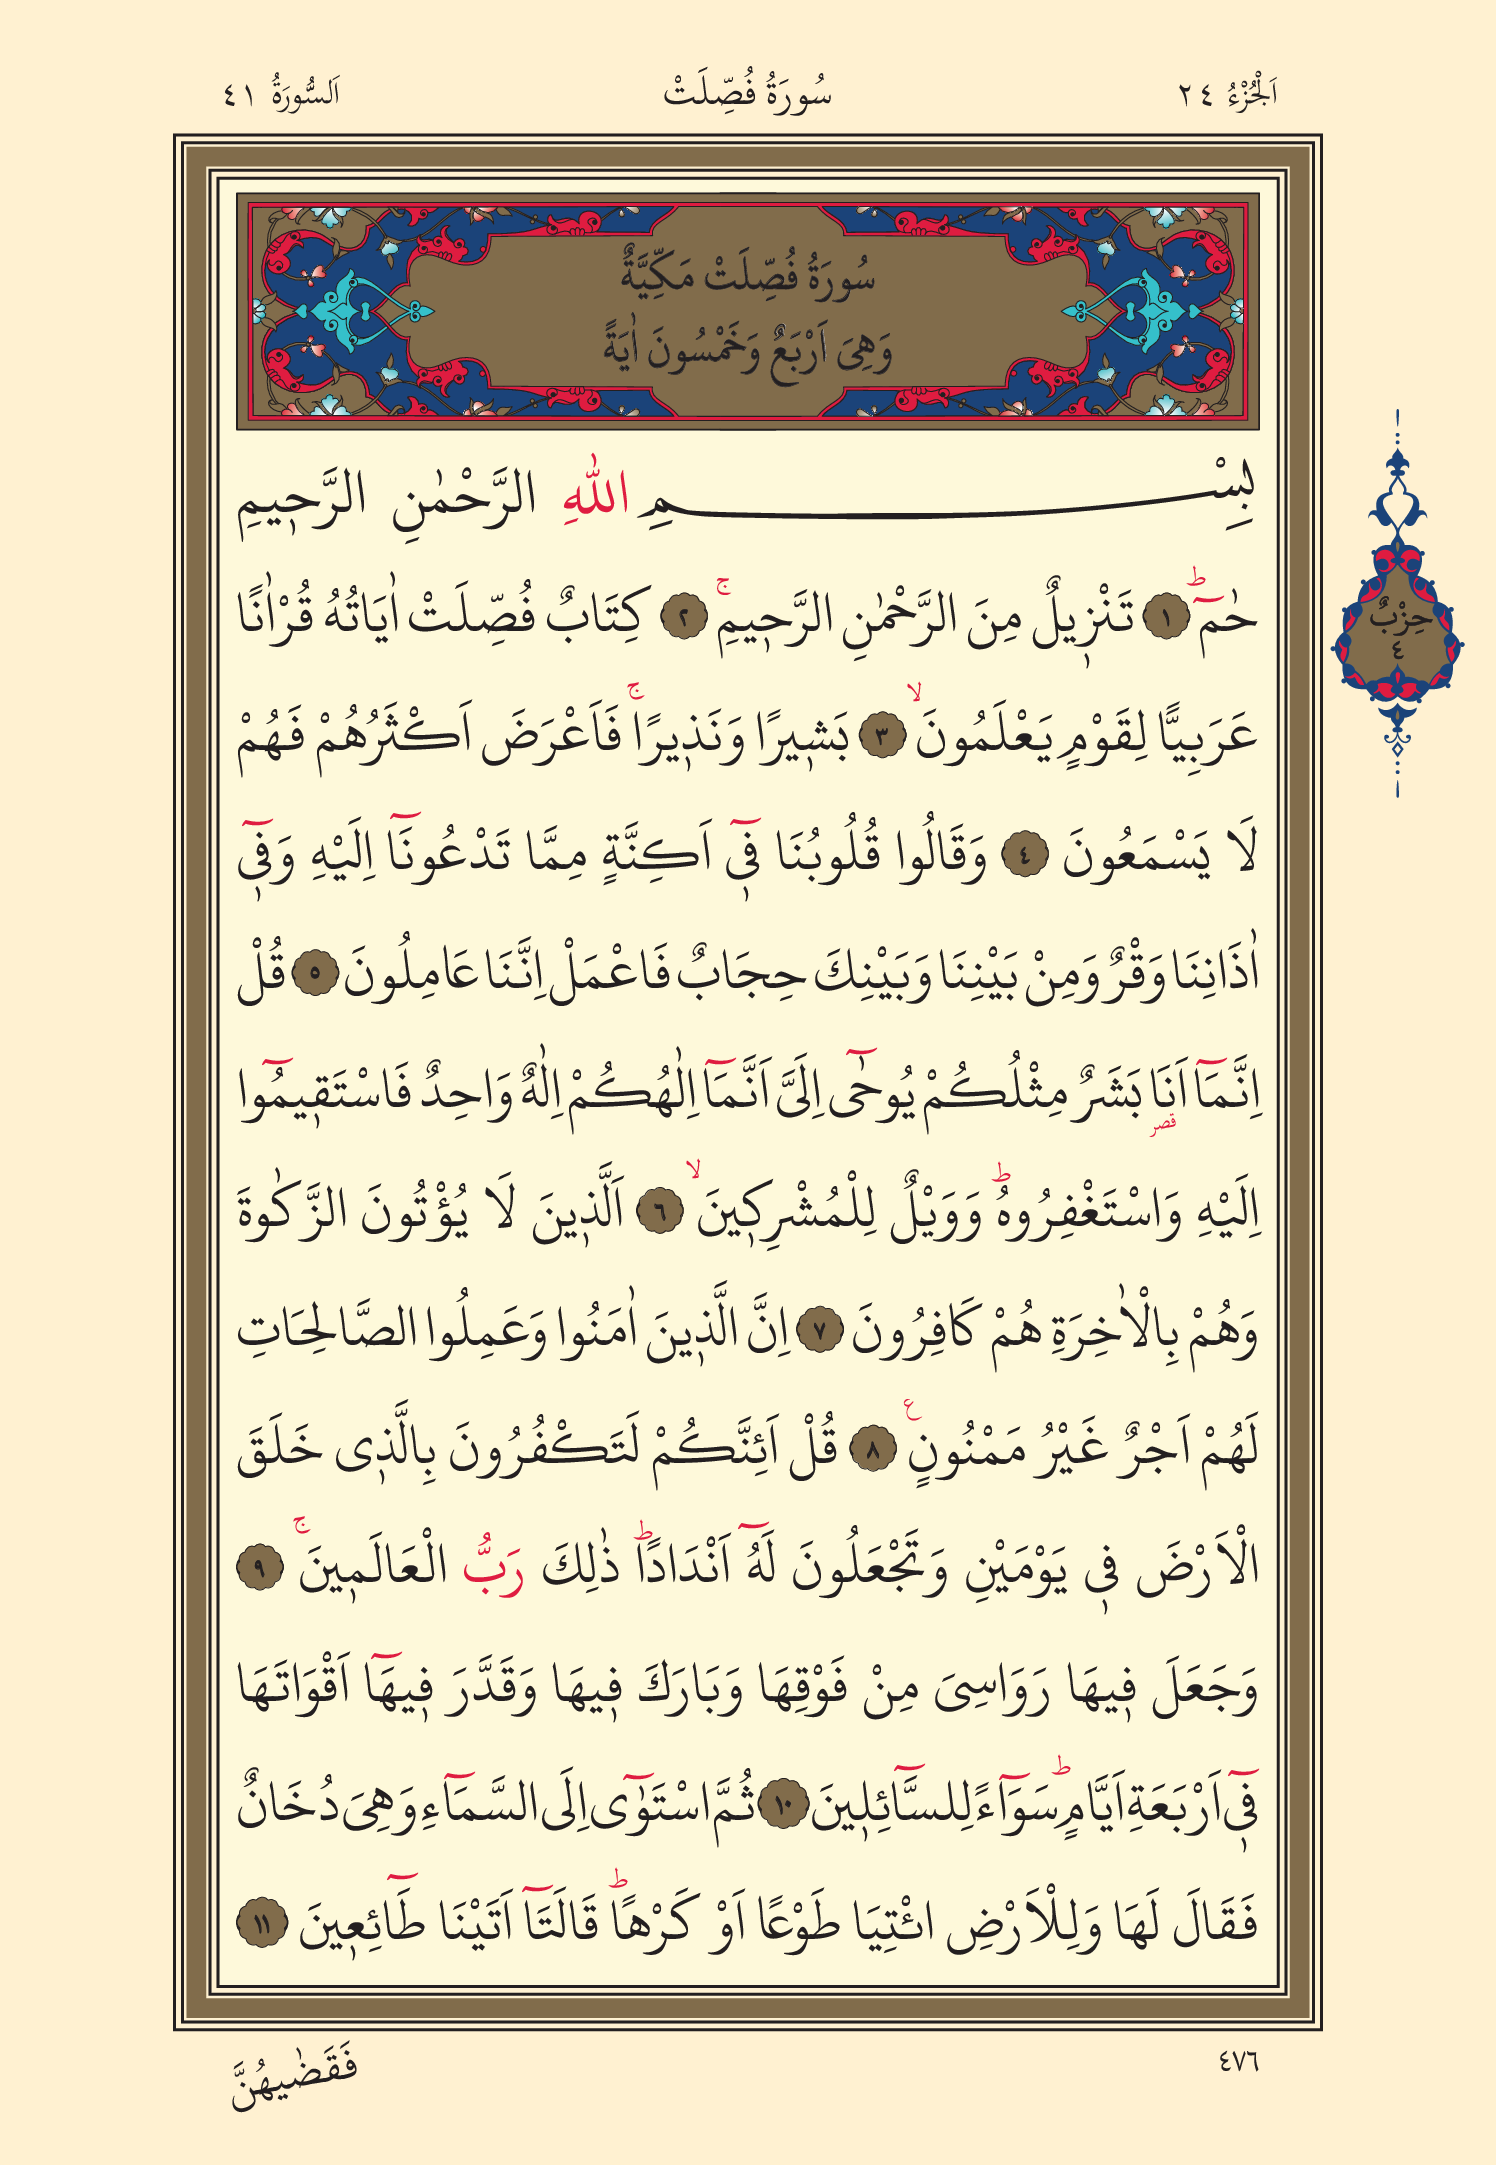 اَلْجُزْءُ ٢٤
سُورَةُ فُصِّلَتْ
اَلسُّورَةُ ٤١
سُورَةُ فُصِّلَتْ مَكِّيَّةٌ
وَهِىَ اَرْبَعٌ وَخَمْسُونَ اٰيَةً
بِسْــــــــــمِ اللّٰهِ الرَّحْمٰنِ الرَّحٖيمِ
حٰمٓ ؕ ١ تَنْزٖيلٌ مِنَ الرَّحْمٰنِ الرَّحٖيمِ ۚ ٢ كِتَابٌ فُصِّلَتْ اٰيَاتُهُ قُرْاٰنًا
عَرَبِيًّا لِقَوْمٍ يَعْلَمُونَ ۙ ٣ بَشٖيرًا وَنَذٖيرًا ۚ فَاَعْرَضَ اَكْثَرُهُمْ فَهُمْ
لَا يَسْمَعُونَ ٤ وَقَالُوا قُلُوبُنَا فٖٓى اَكِنَّةٍ مِمَّا تَدْعُونَٓا اِلَيْهِ وَفٖٓى
اٰذَانِنَا وَقْرٌ وَمِنْ بَيْنِنَا وَبَيْنِكَ حِجَابٌ فَاعْمَلْ اِنَّنَا عَامِلُونَ ٥ قُلْ
اِنَّمَٓا اَنَا۬ بَشَرٌ مِثْلُكُمْ يُوحٰٓى اِلَىَّ اَنَّمَٓا اِلٰهُكُمْ اِلٰهٌ وَاحِدٌ فَاسْتَقٖيمُٓوا
قصر
اِلَيْهِ وَاسْتَغْفِرُوهُ ؕ وَوَيْلٌ لِلْمُشْرِكٖينَ ۙ ٦ اَلَّذٖينَ لَا يُؤْتُونَ الزَّكٰوةَ
وَهُمْ بِالْاٰخِرَةِ هُمْ كَافِرُونَ ٧ اِنَّ الَّذٖينَ اٰمَنُوا وَعَمِلُوا الصَّالِحَاتِ
لَهُمْ اَجْرٌ غَيْرُ مَمْنُونٍ ع ٨ قُلْ اَئِنَّكُمْ لَتَكْفُرُونَ بِالَّذٖى خَلَقَ
الْاَرْضَ فٖى يَوْمَيْنِ وَتَجْعَلُونَ لَهُٓ اَنْدَادًا ؕ ذٰلِكَ رَبُّ الْعَالَمٖينَ ۚ ٩
وَجَعَلَ فٖيهَا رَوَاسِىَ مِنْ فَوْقِهَا وَبَارَكَ فٖيهَا وَقَدَّرَ فٖيهَٓا اَقْوَاتَهَا
فٖٓى اَرْبَعَةِ اَيَّامٍ ؕ سَوَٓاءً لِلسَّٓائِلٖينَ ١٠ ثُمَّ اسْتَوٰٓى اِلَى السَّمَٓاءِ وَهِىَ دُخَانٌ
فَقَالَ لَهَا وَلِلْاَرْضِ ائْتِيَا طَوْعًا اَوْ كَرْهًا ؕ قَالَتَٓا اَتَيْنَا طَٓائِعٖينَ ١١
حِزْبٌ
٤
٤٧٦
فَقَضٰيهُنَّ